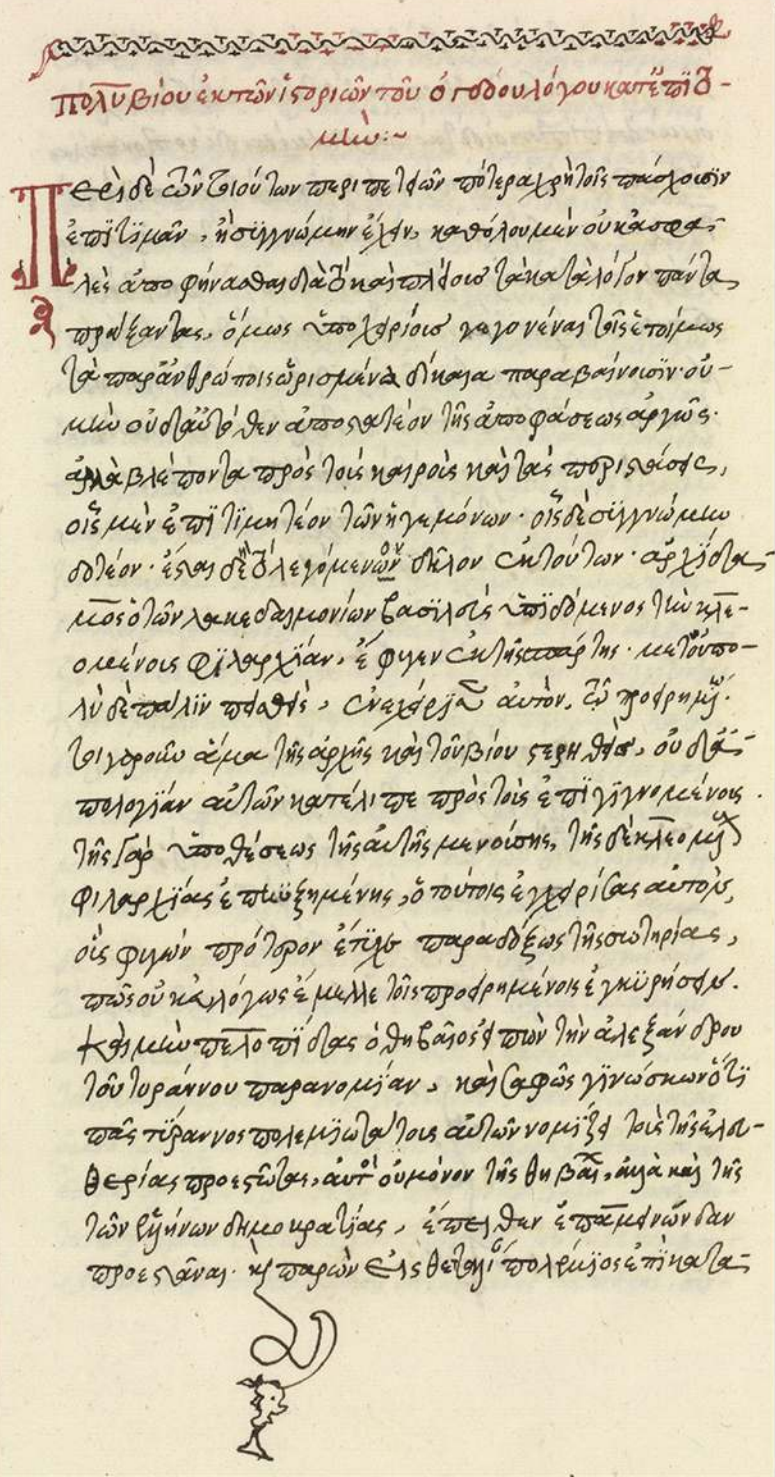 πολυβίου ἐκ τῶν ἱστοριῶν τοῦ ὀγδόου λόγου κατ' ἐπιτο-
μήν:~
Περὶ δὲ τῶν τοιούτων περιπετειῶν πότερα χρὴ τοῖς πάσχουσιν
ἐπιτιμᾶν, ἢ συγγνώμην ἔχειν, καθόλου μὲν οὐκ ἀσφα-
λὲς ἀποφήνασθαι διὰ τὸ καὶ πλείοσι τὰ κατὰ λόγον πάντα
πράξαντας, ὅμως ὑποχειρίοις γεγονέναι τοῖς ἑτοίμως
τὰ παρ' ἀνθρώποις ὡρισμένα δίκαια παραβαίνουσιν· οὐ-
μὴν οὐδ' αὐτόθεν ἀποστατέον τῆς ἀποφάσεως ἀργῶς.
ἀλλὰ βλέποντα πρὸς τοὺς καιροὺς καὶ τὰς περιστάσεις,
οἷς μὲν ἐπιτιμητέον τῶν ἡγεμόνων· οἷς δὲ συγγνώμην
δοτέον· ἔσται δὲ τὸ λεγόμενον δῆλον ἐκ τούτων· ἀρχίδα-
μος ὁ τῶν λακεδαιμονίων βασιλεὺς ὑπιδόμενος τὴν κλε-
ομένους φιλαρχίαν, ἔφυγεν ἐκ τῆς σπάρτης· μετ' οὐ πο-
λὺ δὲ πάλιν πεισθεὶς, ἐνεχείρισεν αὑτὸν τῷ προειρημένῳ.
τοιγαροῦν ἅμα τῆς ἀρχῆς καὶ τοῦ βίου στερηθεὶς, οὐδ' ἀ-
πολογίαν αὑτῷ κατέλιπε πρὸς τοὺς ἐπιγιγνομένους.
τῆς γὰρ ὑποθέσεως τῆς αὐτῆς μενούσης, τῆς δὲ κλεομένους
φιλαρχίας ἐπηυξημένης, ὁ τούτοις ἐγχειρίσας αὑτὸν,
οὓς φυγὼν πρότερον ἔτυχε παραδόξως τῆς σωτηρίας,
πῶς οὐκ εὐλόγως ἔμελλε τοῖς προειρημένοις ἐγκυρήσειν.
καὶ μὴν πελοπίδας ὁ θηβαῖος εἰδὼς τὴν ἀλεξάνδρου
τοῦ τυράννου παρανομίαν, καὶ σαφῶς γινώσκων ὅτι
πᾶς τύραννος πολεμιωτάτους αὑτῷ νομίζει τοὺς τῆς ἐλευ-
θερίας προεστῶτας, αὐτὸς οὐ μόνον τῆς θηβαίων, ἀλλὰ καὶ τῆς
τῶν ἑλλήνων δημοκρατίας, ἔπειθεν ἐπαμεινώνδαν
προεστάναι· καὶ παρὼν εἰς θετταλίαν πολέμιος ἐπὶ κατα-